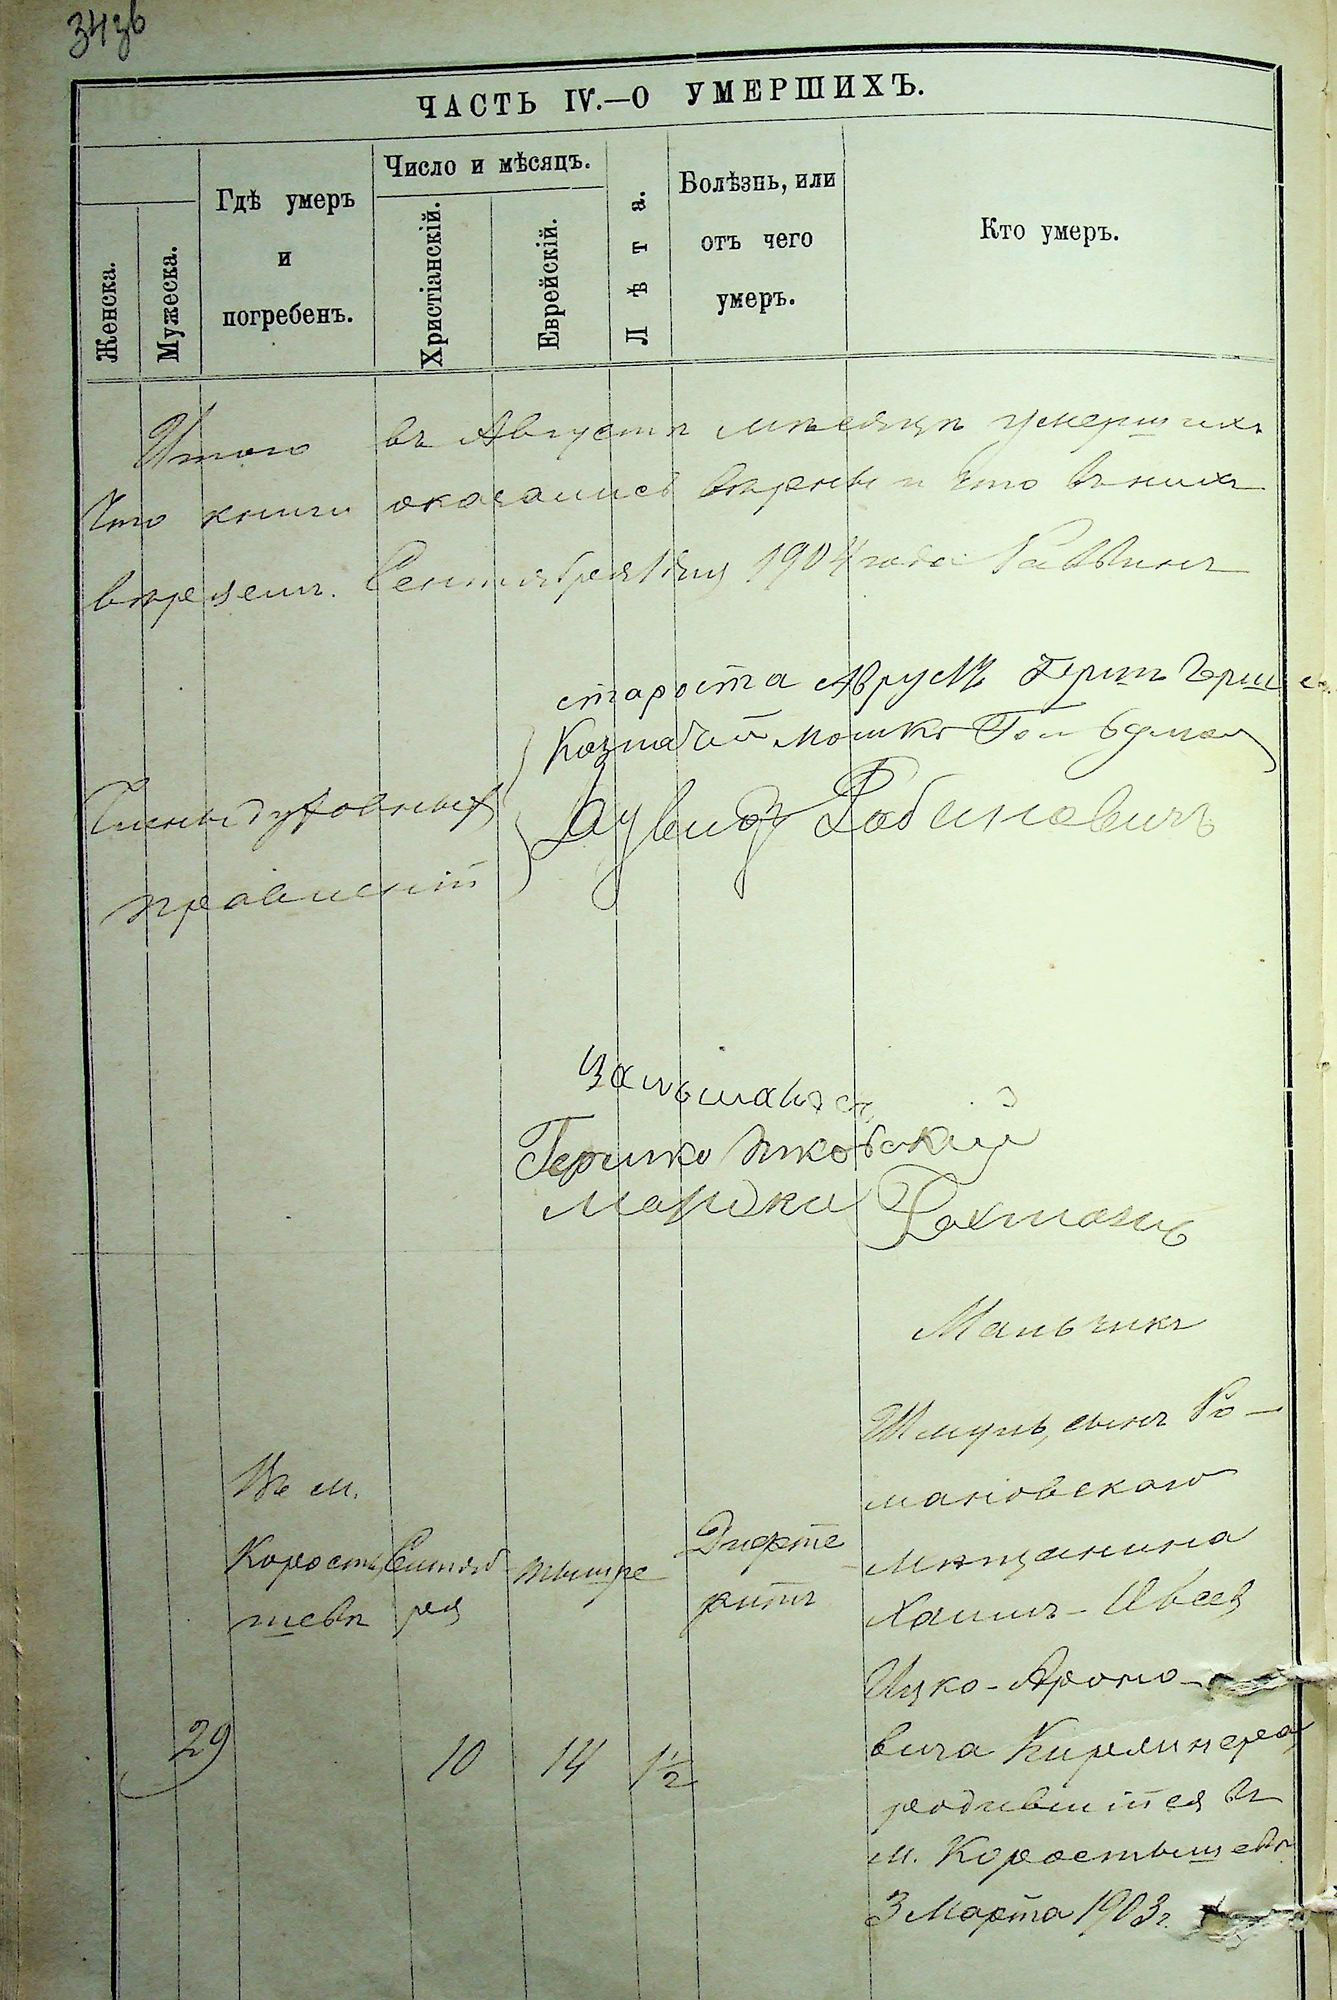 343б
ЧАСТЬ IV.—О УМЕРШИХЪ.
Женска.
Мужеска.
Гдѣ умеръ
и
погребенъ.
Число и мѣсяцъ.
Христіанскій.
Еврейскій.
Лѣта.
Болѣзнь, или
отъ чего
умеръ.
Кто умеръ.
Итого въ Августѣ мѣсяцѣ умершихъ
Что книги оказались вѣрны и что въ нихъ
Сентября 1 дня 1904 года Раввинъ
староста Аврумъ Герш Герш
Казначей Мошко Гольдман
Члены духовныхъ
Дувидъ Рабиновичъ
правленій
Гершко
Мальчикъ
Шмуль, сынъ Ро-
мановскаго
мѣщанина
Хаимъ-Овсея
Ицко-Ароно-
вича
родившійся въ
м. Коростышевѣ
3 Марта 1903 г.
Въ м.
Коросты
шевѣ
Сентяб
ря
тышре
Дифте
ритъ
29
10
14
1½